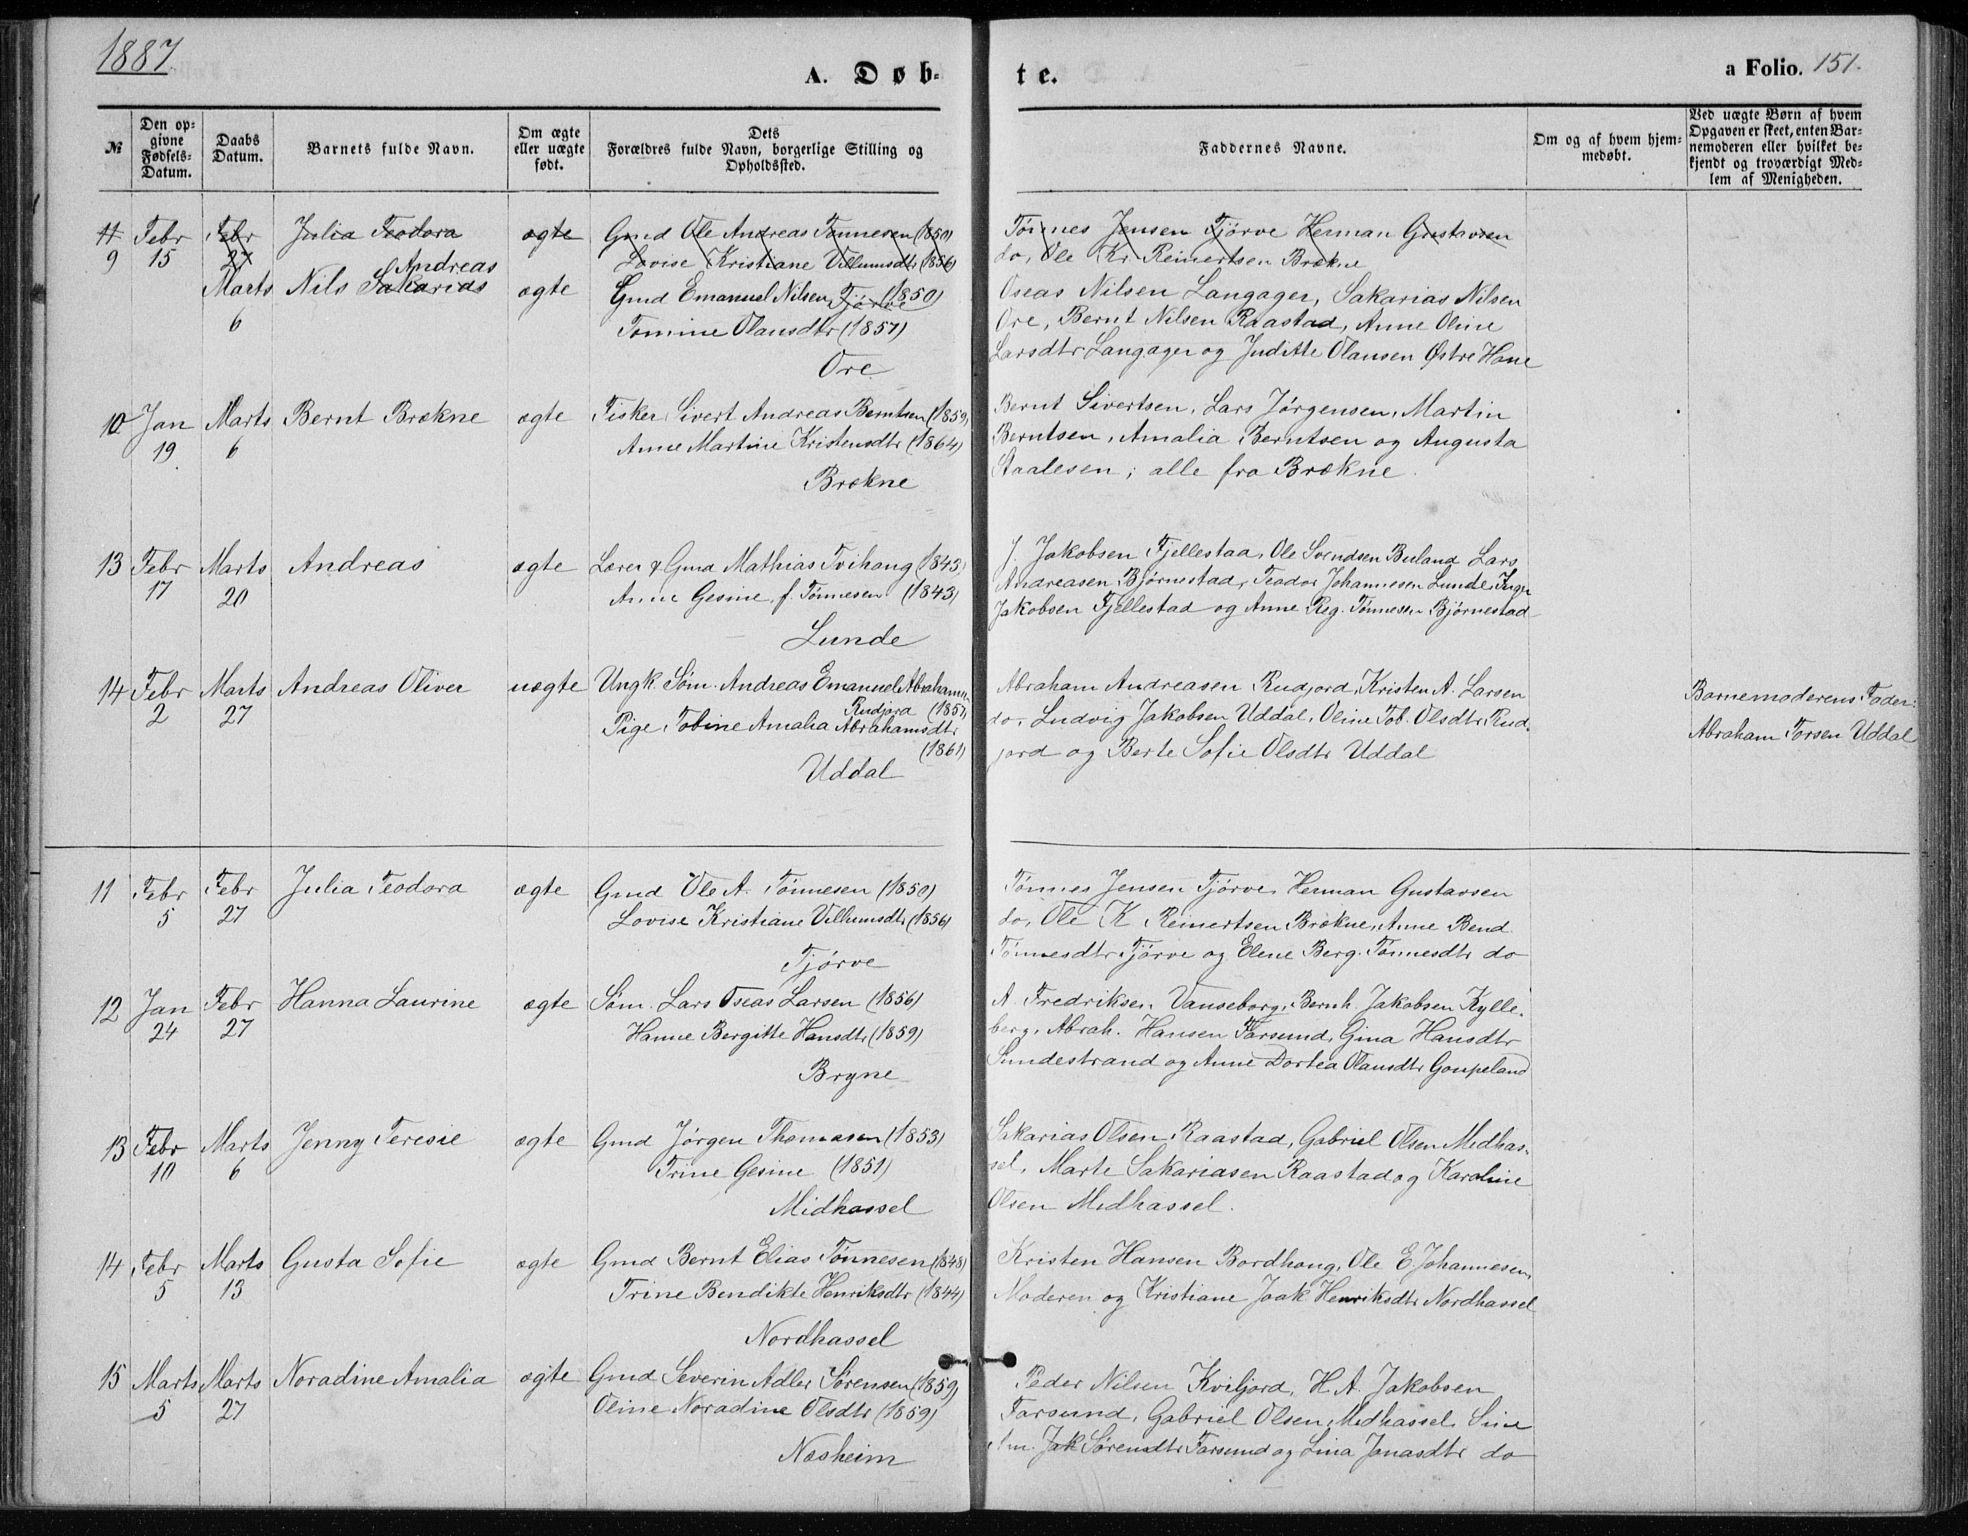 1887
A. Døb-
te.
a Folio. 151.
№
Den opgivne Fødsels-Datum.
Daabs Datum.
Barnets fulde Navn.
Om ægte eller uægte født.
Dets
Forældres fulde Navn, borgerlige Stilling og Opholdssted.
Faddernes Navne.
Om og af hvem hjemmedøbt.
Ved uægte Børn af hvem Opgaven er skeet, enten Barnemoderen eller hvilket bekjendt og troværdigt Medlem af Menigheden.
11 Febr Febr Julia Teodora ægte Gmd Ole Andreas Tønnesen (1850) Tønnes Jensen Tjørve Herman Gustavsen
9 15 27 Lovise Kristiane Vilhumsdtr (1856) do, Ole Kr. Reinertsen Brækne
Andreas
Marts Nils Sakarias ægte Gmd Emanuel Nilsen Tjørve (1850) Oseas Nilsen Langager, Sakarias Nilsen
6 Tomine Olausdtr (1857) Ore, Bernt Nilsen Raastad, Anne Oline
Ore Larsdtr Langager og Juditte Olausen Østre Hane
10 Jan Marts Bernt Brækne ægte Fisker Sivert Andreas Berntsen (1859) Bernt Sivertsen, Lars Jørgensen, Martin
19 6 Anne Martine Kristensdtr (1864) Berntsen, Amalia Berntsen og Augusta
Brækne Staalesen, alle fra Brækne.
13 Febr Marts Andreas ægte Lærer & Gmd Mathias Tvihaug (1843) J. Jakobsen Fjellestad, Ole Svendsen Buland Lars
17 20 Anne Gesine f. Tønnesen (1843) Andreasen Bjørnestad, Teodor Johannesen Lunde, Inger
Lunde Jakobsen Fjellestad og Anne Reg. Tønnesen Bjørnestad
14 Febr Marts Andreas Oliver uægte Ungk. Søm. Andreas Emanuel Abrahams. Abraham Andreasen Rudjord, Kristen A. Larsen Barnemoderens Fader:
2 27 Rudjord (1857) do, Ludvig Jakobsen Uddal, Oline Tob. Olsdtr Rud- Abraham Torsen Uddal
Pige Tobine Amalia Abrahamsdtr jord og Berte Sofie Olsdtr Uddal
(1861)
Uddal
11 Febr Febr Julia Teodora ægte Gmd Ole A. Tønnesen (1850) Tønnes Jensen Tjørve, Herman Gustavsen
5 27 Lovise Kristiane Vilhumsdtr (1856) do, Ole K. Reinertsen Brækne, Anne Bend
Tjørve Tønnesdtr Tjørve og Elene Berg. Tønnesdtr do
12 Jan Febr Hanna Laurine ægte Søm. Lars Oseas Larsen (1856) A. Fredriksen Vanseborg, Bernh Jakobsen Kylle-
24 27 Hanne Bergitte Hansdtr (1859) berg, Abrah. Hansen Farsund, Gina Hansdtr
Bryne Sundestrand og Anne Dortea Olausdtr Goupeland
13 Febr Marts Jenny Teresie ægte Gmd Jørgen Thomasen (1853) Sakarias Olsen Raastad, Gabriel Olsen Midhas-
10 6 Trine Gesine (1851) sel, Marte Sakariasen Raastad og Karoline
Midhassel Olsen Midhassel.
14 Febr Marts Gusta Sofie ægte Gmd Bernt Elias Tønnesen (1848) Kristen Hansen Bordhaug, Ole E Johannesen,
5 13 Trine Bendikte Henriksdtr (1844) Moderen og Kristiane Jaak Henriksdtr Nordhassel
Nordhassel
15 Marts Marts Noradine Amalia ægte Gmd Severin Adler Sørensen (1859) Peder Nilsen Kviljord, H. A. Jakobsen
5 27 Oline Noradine Olsdtr (1859) Farsund, Gabriel Olsen Midhassel, Sine
Næsheim Jak Sørensdtr Farsund og Lina Jonasdtr do